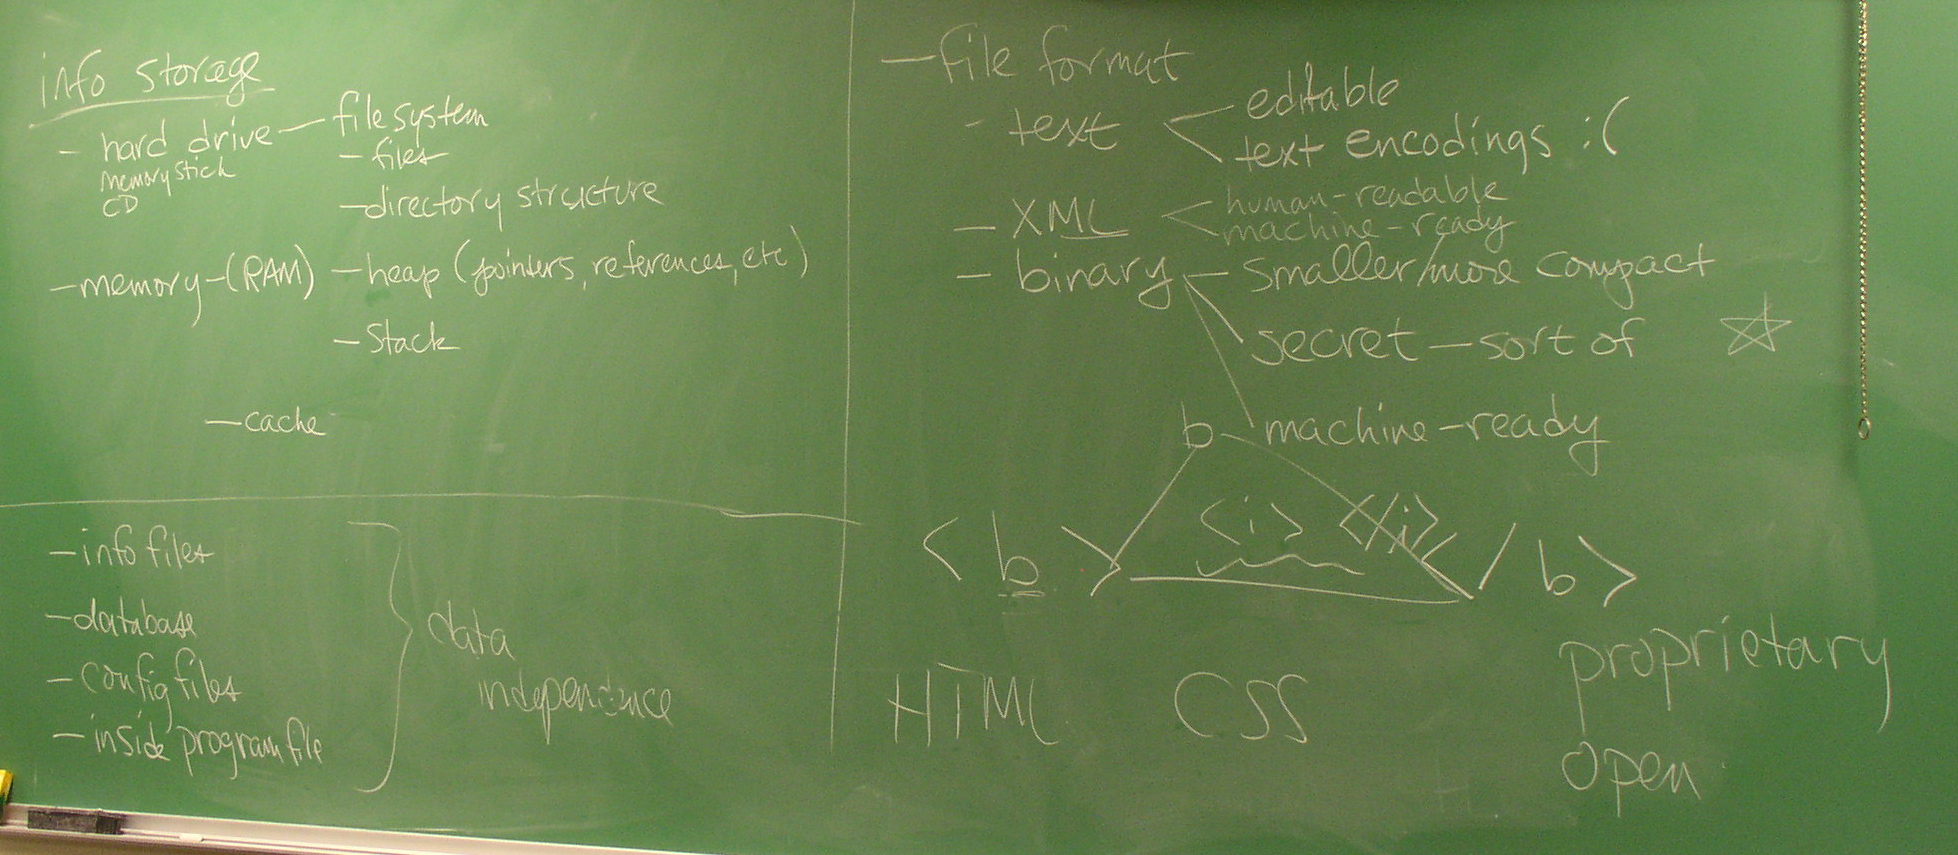 info storage
- hard drive — filesystem
memory stick
CD
- files
- directory structure
- memory - (RAM) - heap (pointers, references, etc)
- stack
- cache
- info files
- database
- config files
- inside program file
data
independence
- file format
- text < editable
text encodings :(
- XML < human-readable
machine-ready
- binary - smaller/more compact
secret - sort of
b machine-ready
<i> </i>
<b> </b>
HTML CSS
proprietary
open